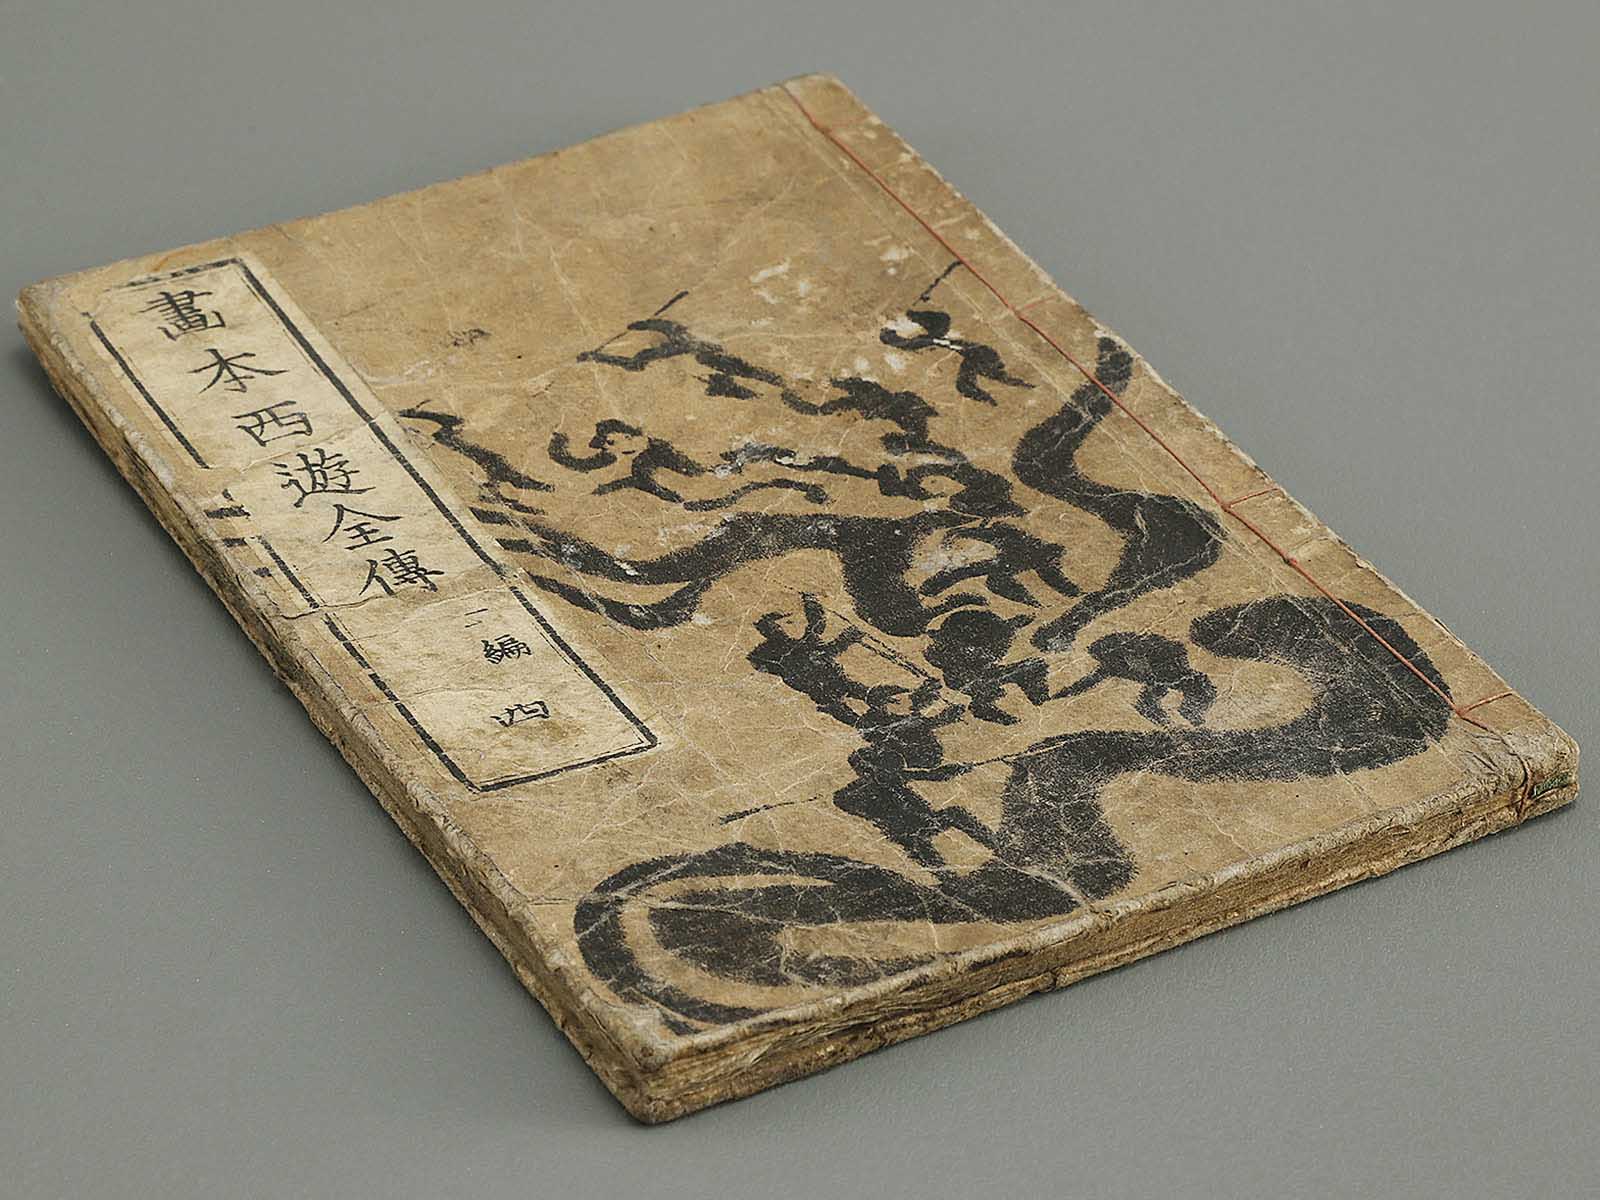 畫本西遊全傳
二編
四